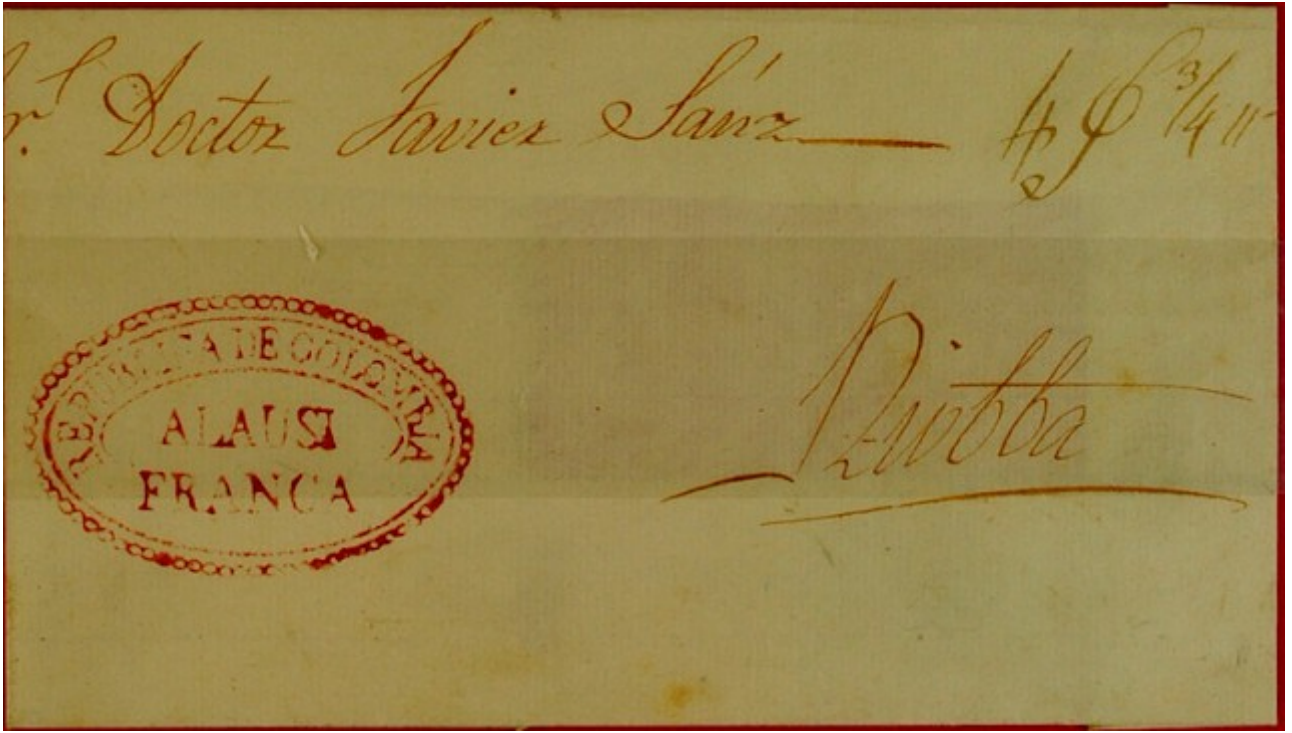 Sr. Doctor Javier Sanz
3/4
REPUBLICA DE COLOMBIA
ALAUSI
FRANCA
Riobba